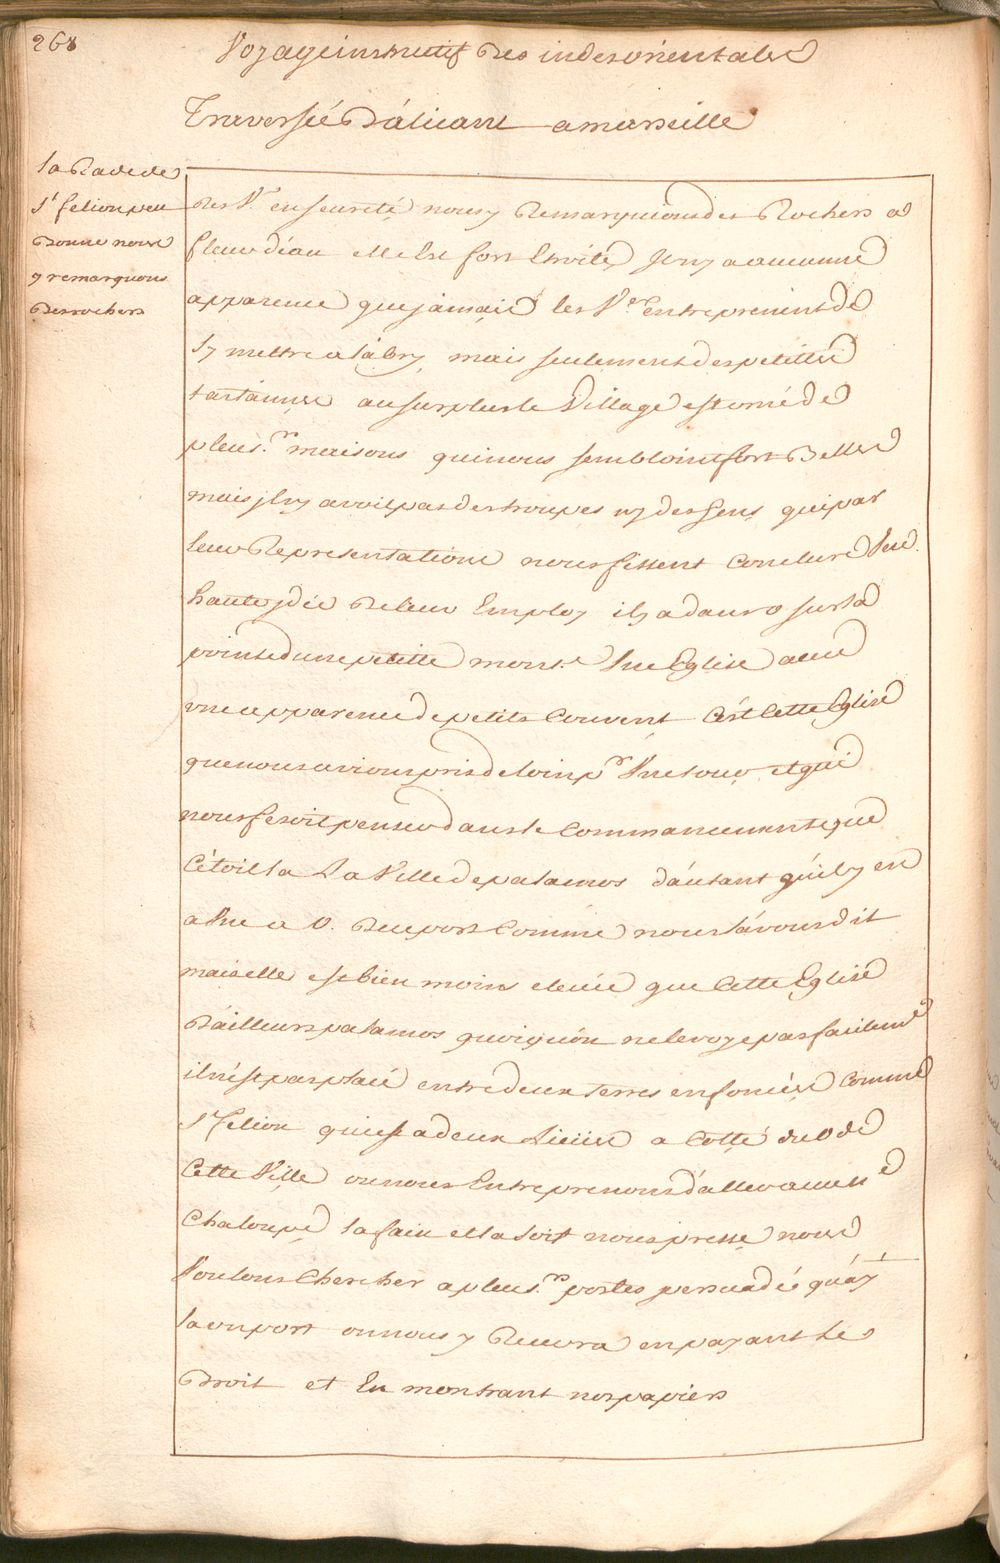 268
Voyage instructif Des indes orientales
Traversée D'alicant a marseille
la Rade de
St felion peu
Bonne nous
y remarquons
Des rochers
Des Vx en seureté nous y Remarquions des Rochers a
fleur d'eau elle Est fort Etroite Jl ny a aucunne
apparence que jamais les Vx Entreprenient de
sy mettre a l'abry, mais seulement des petittes
tartannes au surplus le Village est orné de
plusrs maisons qui nous sembloint fort Belles
mais jl ny avoit pas des troupes ny des Gens qui par
leur Representations nous fissent Conclure Une
haute jdée De leur Employ il y a d'auro sur la
pointe d'une petitte montne Une Eglise avec
une apparence de petits Couvent C'est Cette Eglise
que nous avions pris de loin pr Une tour et qui
nous fesoit penser dans le Commancement que
C'etoit la La Ville de palamos d'autant qu'il y en
a Une a O. Du port Comme nous l'avons dit
mais elle est bien moins elevée que Cette Eglise
D'ailleurs palamos quoiqu'on ne le voye pas facilemt
il n'est pas placé entre deux terres enfoncées Comme
St Felion qui est a deux Lieües a Cotté du O de
Cette Ville ou nous Entreprenons d'aller avec ne
Chaloupe la faim et la soif nous presse nous
Voulons Chercher a plusrs portes persuadé qu'a
la un port on nous y Recevra en payant les
Droit et En montrant nos papiers